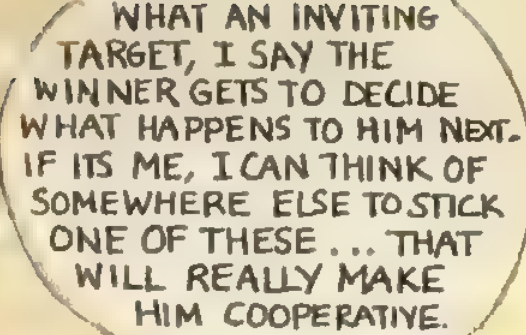 WHAT AN INVITING
TARGET, I SAY THE
WINNER GETS TO DECIDE
WHAT HAPPENS TO HIM NEXT.
IF ITS ME, I CAN THINK OF
SOMEWHERE ELSE TO STICK
ONE OF THESE... THAT
WILL REALLY MAKE
HIM COOPERATIVE.